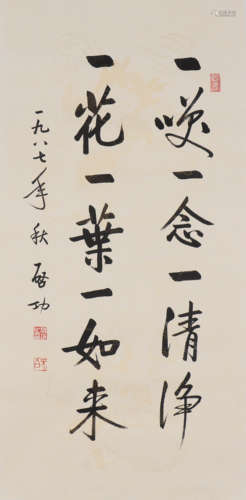 一咲一念一清净
一花一葉一如来
一九八七年秋 启功